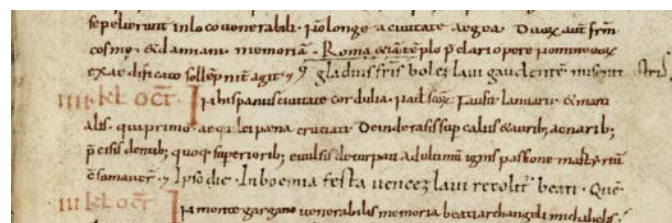 sepelierunt in loco venerabili. n̄ longe a civitate aegea. Quox aut̄ frm̄
cosmę & damiani memoriā. Romę etiā tēplo p̄clari opere nomine eox
ex aedificato sollēpnit̄ agit.
gladius fr̄is bolezlavi gaudentē misit
IIII KL OCT̄. In hispaniis civitate corduba. nat̄ scōx Fausti Ianuarii & marci
alis. qui primo aeculei pena cruciati. Deinde rasis supciliis & aurib; ac narib;
p̄cisis dentib; quoq; superiorib; evulsis deturpati ad ultimū ignis passione martyriū
c̄somaver̄. Ipso die. In boemia festa vencezlavi recolit̄ beati. Quē
III KL OCT̄ In monte gargano venerabilis memoria beati archangeli michahelis.